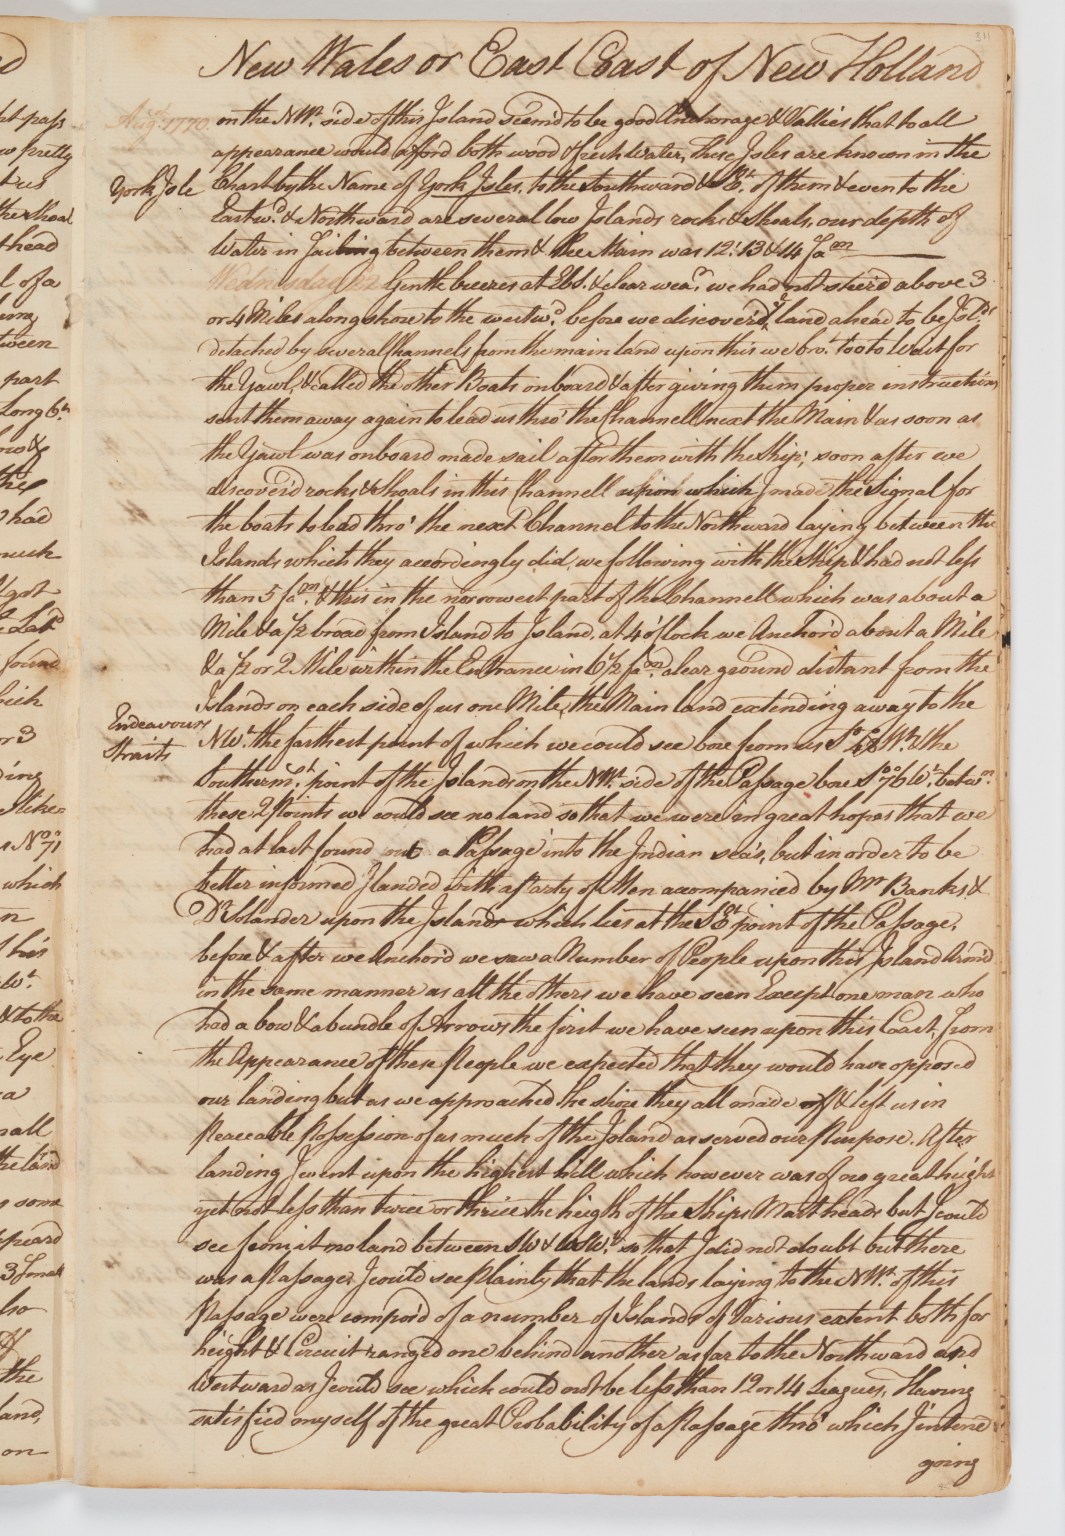 311
New Wales or East Coast of New Holland
Augt. 1770. on the NWt. side of this Island seem'd to be good Anchorage & Vallies that to all
appearance would afford both wood & fresh Water, These Isles are known in the
York Isle Chart by the Name of York Isles, to the Southward & SEt. of them & even to the
Eastwd. & Northward are several low Islands rocks & shoals, our depth of
Water in Sailing between them & the Main was 12: 13 & 14 fam
Wednesday 22 Gentle breezes at EbS. & clear wear. we had not steer'd above 3
or 4 Miles along shore to the westwd. before we discover'd ye. land ahead to be Isds.
detached by several Channels from the main land upon this we bro.t too to Wait for
the Yawl, & called the other Boats onboard & after giving them proper instructions
sent them away again to lead us thro' the Channell next the Main & as soon as
the Yawl was onboard made sail after them with the Ship; soon after we
discover'd rocks & shoals in this Channell upon which I made the Signal for
the boats to lead thro' the next Channel to the Northward laying between the
Islands which they accordingly did, we following with the Ship & had not less
than 5 fam. & this in the narrowest part of the Channell which was about a
Mile & a 1/2 broad from Island to Island, at 4 o'Clock we Anchor'd about a Mile
& a 1/2 or 2 Mile within the Entrance in 6 1/2 fam. clear ground distant from the
Islands on each side of us one Mile, the Main land extending away to the
Endeavours
Straits
NWt. the farthest point of which we could see bore from us So. 48 Wt. & the
Southermst. point of the Islands on the NWt. side of the Passage bore So. 76 Wt. betwn.
these 2 Points we could see no land so that we were in great hopes that we
had at last found out a Passage into the Indian sea's, but in order to be
better informed I landed with a Party of Men accompanied by Mr Banks &
Dr Solander upon the Island which lies at the SEt. point of the Passage,
before & after we Anchor'd we saw a Number of People upon this Island Arm'd
in the same manner as all the others we have seen Except one man who
had a bow & a bundle of Arrows the first we have seen upon this Coast, From
the Appearance of these People we expected that they would have opposed
our landing but as we approached the shore they all made off & left us in
Peaceable Possession of as much of the Island as served our Purpose. After
landing I went upon the highest hill which however was of no great hight
yet not less than twice or thrice the heigth of the Ships Mast heads but I could
see from it no land between SW & WSWt. so that I did not doubt but there
was a Passage, I could see Plainly that the lands laying to the NWt. of this
Passage were compos'd of a number of Islands of Various extent both for
height & Circuit ranged one behind another as far to the Northward and
Westward as I could see which could not be less than 12 or 14 Leagues, Having
satisfied myself of the great Probability of a Passage thro' which I intend
going